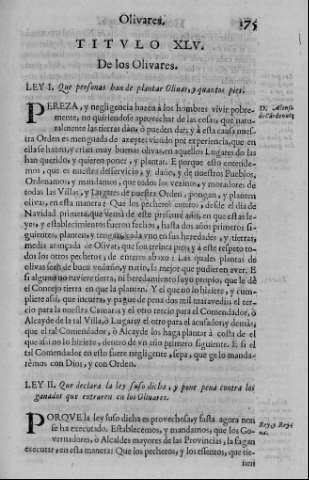 Olivares. 175
TITVLO XLV.
De los Olivares.
LEY I. Que personas han de plantar Olivas, y quantos pies.
PEREZA, y negligencia hazen á los hombres vivir pobre-
mente, no queriendose aprovechar de las cosas que natu-
ralmente las tierras dan, ò pueden dar; y à esta causa nues-
tra Orden es menguada de azeyte; viendo por experiencia, que en
ella se hazen, y crian muy buenas olivas, en aquellos Lugares do las
han querido, y quieren poner, y plantar. E porque esto entende-
mos, que es nuestra de servicio, y daño, y de nuestros Pueblos,
Ordenamos, y mandamos, que todos los vezinos, y moradores de
todas las Villas, y Lugares de nuestra Orden, pongan, y planten
olivas, en esta manera: Que los pecheros enteros, desde el dia de
Navidad primera, que vernà de este presente año, en que estas le-
yes, y establecimientos fueron fechos, hasta dos años primeros si-
guientes, planten, y tengan cada vno en sus heredades, y tierras,
media arançada de Olivar, que son treinta pies, y à este respeto to-
dos los otros pecheros, de entero abaxo: Las quales plantas de
olivas sean de buen veduño, y natio, lo mejor que pudieren aver. E
si alguno no tuviere tierra, ni heredamiento suyo propio, que le dè
el Concejo tierra en que la planten. Y el que no lo hiziere, y cum-
pliere assi, que incurra, y pague de pena dos mil maravedis: el ter-
cio para la nuestra Camara y el otro tercio para el Comendador, ò
Alcayde de la tal Villa, ò Lugar: y el otro para el acusador, y demàs,
que el tal Comendador, ò Alcayde los haga plantar à costa de el
que assi no lo hiziere, dentro de vn año primero siguiente. E si el
tal Comendador en esto fuere negligente, sepa, que ge lo manda-
rémos con Dios, y con Orden.
D. Alonso
de Cardenas
LEY II. Que declara la ley suso dicha, y pone pena contra los
ganados que entraren en los Olivares.
PORQVE la ley suso dicha es provechosa, y fasta agora non
se ha executado. Establecemos, y mandamos, que los Go-
vernadores, ò Alcaldes mayores de las Provincias, la fagan
executar, en esta manera: Que los pecheros, y los essentos, que tie-
nen